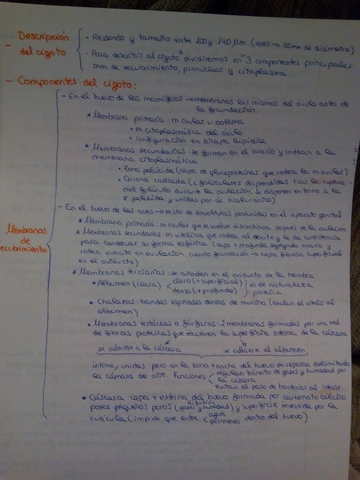 - Descripción del cigoto
- Redondo y tamaño entre 100 y 140 µm (aves → de diámetro)
- Para describir al cigoto dividiremos en 3 componentes principales: 
de recubrimiento, pronúcleos y citoplasma
- Componentes del cigoto:
Membranas de recubrimiento
- En el huevo de los mamíferos → membranas las mismas del óvulo antes de
la fecundación.
* Membrana primaria: m ovular u oolema
• m citoplasmática del óvulo
• configuración en bicapa lipídica
* Membranas secundarias: se forman en el ovario y rodean a la
membrana citoplasmática
• Zona pelúcida (capa de glucoproteínas que rodea la m ovular)
• Corona radiada (c foliculares desprendidas tras la
del folículo durante la ovulación. Se disponen en torno a la
z pelúcida y unidas por ác hialurónico)
- En el huevo de las aves → resto de envolturas producidas en el aparato genital
* Membrana primaria: m ovular que se vuelve discontinua después de la ovulación
* Membranas secundarias: m vitelina que rodea al vitelo y le da consistencia
para conservar su forma esférica (capa + profunda segregada ovario y
rodea ovocito en ovulación, cuando fecundación → capa fibrosa superficial
en el oviducto)
* Membranas terciarias: se añaden en el oviducto de la hembra
• Albumen (clara) < claro (+ superficial) denso (+ profundo) } de naturaleza
proteica
• Chalazas: bandas espirales densas de mucina (anclan el vitelo al
albumen)
• Membranas testáceas o fárfaras: 2 membranas formadas por una red
de fibras proteicas que recubren la superficie interna de la cáscara
se adhiere a la cáscara se adhiere al albumen
íntima/ unidas pero en la zona + ancha del huevo se separan delimitando
la cámara de aire. Funciones < regulan tránsito de gases y humedad por
la cáscara
evitan el paso de bacterias al interior
• Cáscara: capa + externa del huevo formada por carbonato cálcico
posee pequeños poros (gases y humedad) y superficie revestida por la
cutícula (impide que entre < agua gérmenes dentro del huevo)